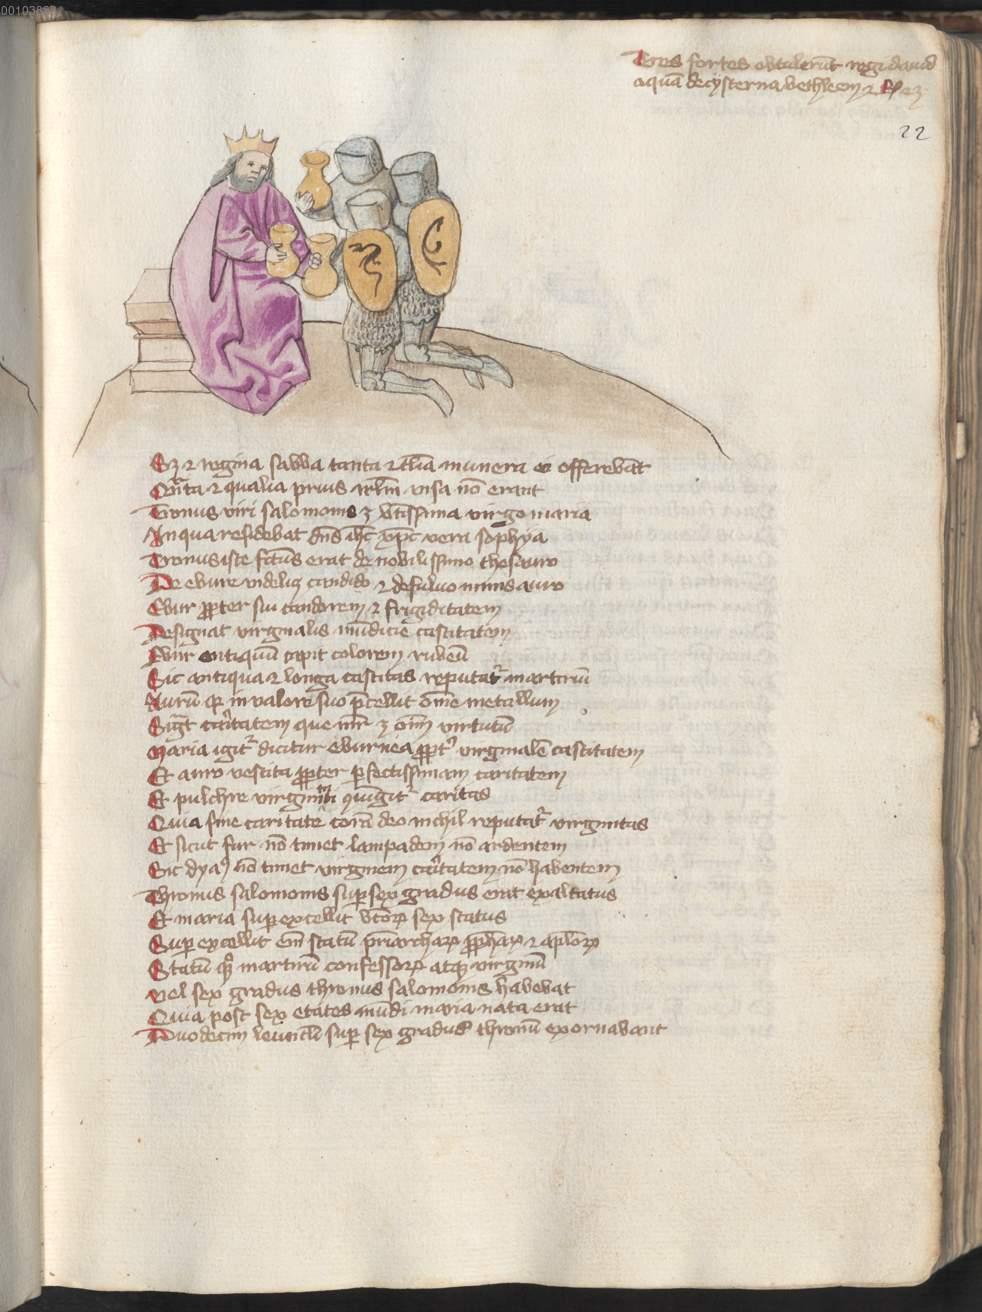 Tres fortes obtulerūt regi dauid
aquā de cysterna bethleem 2 R
22
Et 2 regina sabba tanta 2 talia munera ei offerebāt
Quāta 2 qualia prius irlm visa nō erant
Tronus viri salomonis ē btissima virgo maria
In qua residebat dn̄s ihc xp̄c vera sophya
Tronus iste fc̄us erat de nobilissimo thesauro
De ebure videlicꝫ candido 2 de fuluo nimis auro
Ebur ꝓpter sui candorem 2 frigiditatem
Designat virginalis mūdicie castitatem
Ebur antiquū capit colorem rubeū
Sic antiqua 2 longa castitas reputat᷑ martiriū
Aurū qꝫ in valore suo p̄cellit om̄e metallum
Sigt caritatem que mr̄ ē om̄ virtutū
Maria igit᷑ dicitur eburnea ꝓpt᷑ virginalē castitatem
Et auro vestita ꝓpter ꝑfectissimam caritatem
Et pulchre virginitati iūgit᷑ caritas
Quia sine caritate corā deo nichil reputat᷑ virginitas
Et sicut fur nō timet lampadem nō ardentem
Sic dyaꝯ nō timet virginem caritatem nō habentem
Thronus salomonis suꝑ sex gradus erat exaltatus
Et maria suꝑexcellit btōꝝ sex status
Suꝑexcellit em̄ statū pr̄iarchaꝝ ꝓphaꝝ 2 apl̄oꝝ
Statū qꝫ martirū confessoꝝ atqꝫ virginū
Vel sex gradus thronus salomonis habebat
Quia post sex etates mūdi maria nata erat
Duodecim leunculi suꝑ sex gradus thronū exornabant